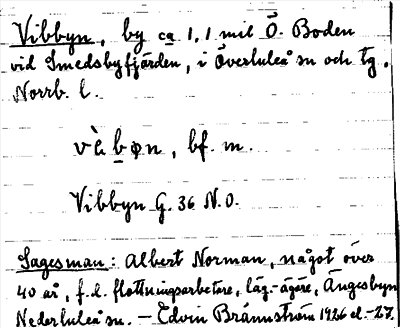 Vibbyn, by ca 1,1 mil Ö. Boden
vid Smedsbyfjärden, i Överluleå sn och tg,
Norrb. l.
vìbøn, bf. m.
Vibbyn G. 36 N.O.
Sagesman: Albert Norman, något över
40 år, f.d. flottningsarbetare, läg.-ägare, Ängesbyn
Nederluleå sn. – Edvin Brännström 1926 el. -27.